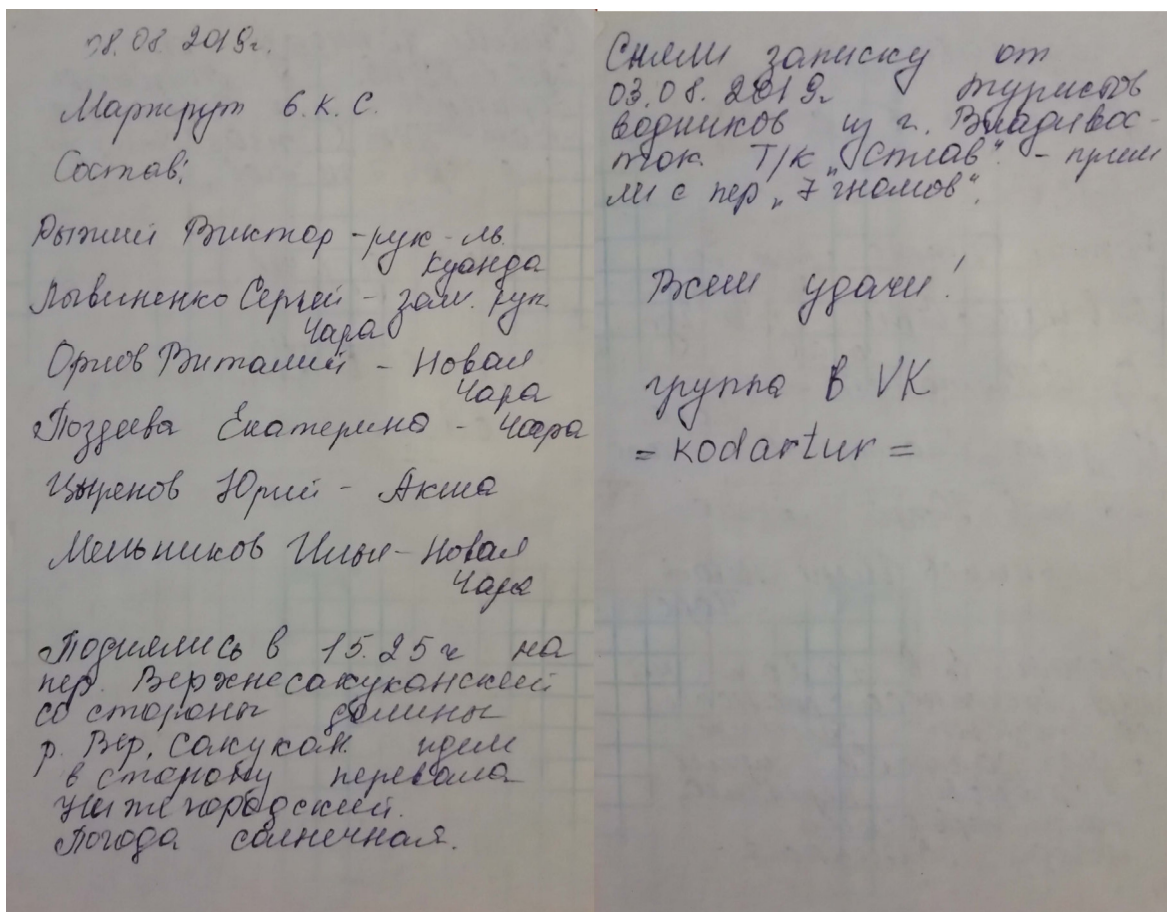 08.08.2019г.
Маршрут 6.к.с.
Состав:
Рыжий Виктор - рук-ль.
Куанда
Лывиненко Сергей - зам. рук.
Чара
Орлов Виталий - Новая
Чара
Поздеева Екатерина - Чара
Цыренов Юрий - Акша
Мельников Илья - Новая
Чара
Поднялись в 15.25ч на
пер. Верхнесакуканский
со стороны долины
р. Вер. Сакукан. идем
в сторону перевала
Нижегородский.
Погода солнечная.
Сняли записку от
03.08.2019г туристов
водников из г. Владивос-
ток. Т/к „Сплав". - приш
ли с пер „7 гномов".
Всем удачи!
группа в VK
= kodartur =